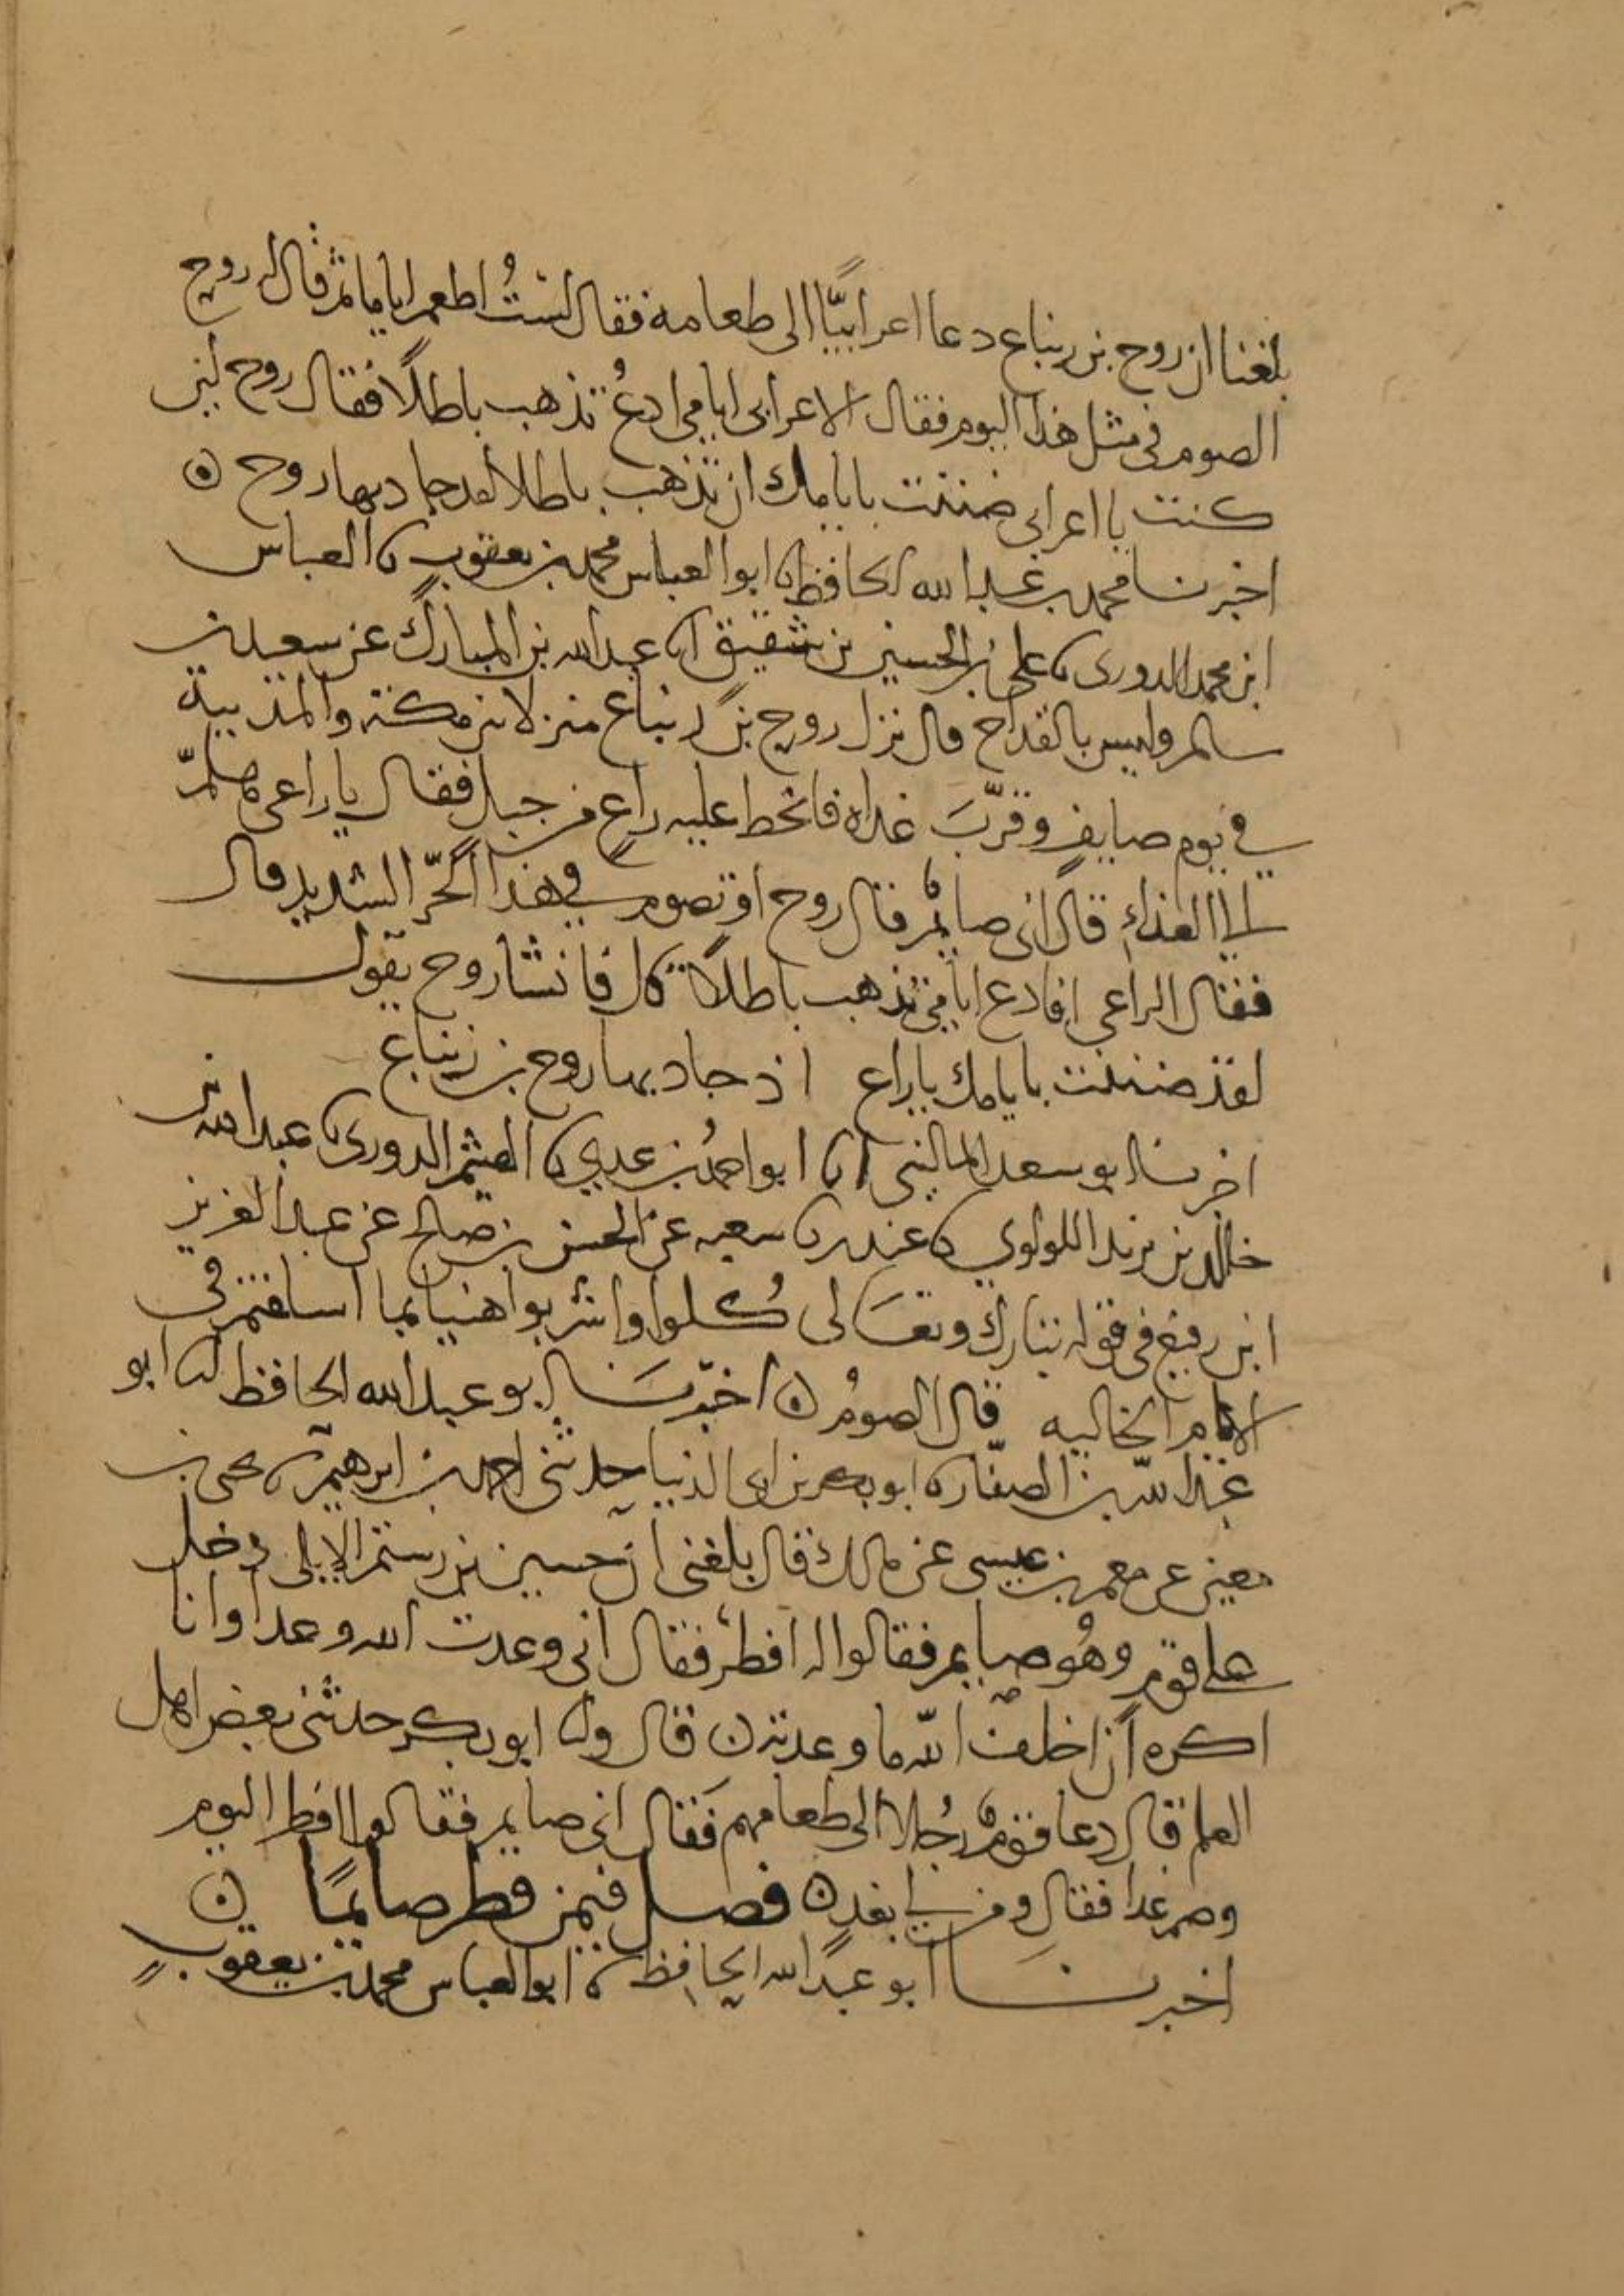 بلغنا ان روح بن زنباع دعا اعرابيًّا الى طعامه فقال لستُ اطعم اياما ثم قال له روح
الصوم في مثل هذا اليوم فقال الاعرابي ايامي ادعُ تذهب باطلًا فقال روح لئن
كنت يا اعرابي ضننت بايامك ان تذهب باطلا لقد جاد بها روح ٥
اخبرنا محمد بن عبد الله الحافظ نا ابو العباس محمد بن يعقوب نا العباس
ابن محمد الدوري نا علي بن الحسين بن شقيق انا عبد الله بن المبارك عن سعيد بن
سالم وليس بالقداح قال نزل روح بن زنباع منزلا بين مكة والمدينة
في يوم صايفٍ وقرّبَ غداه فانحط عليه راعٍ من جبل فقال يا راعي هلمّ
الى الغداءِ قال اني صايمٌ قال روح اوتصوم في هذا الحرّ الشديد قال
فقال الراعي افادع ايامي تذهب باطلًا قال فانشا روح يقول
لقد ضننت بايامك يا راع اذ جاد بها روح بن زنباع
اخبرنا ابو سعد الماليني انا ابو احمد بن عدي نا الهيثم الدوري نا عبد الله بن
خالد بن يزيد اللولوي نا غندر نا شعبه عن الحسن بن صالح عن عبد العزيز
ابن رفيع في قوله تبارك وتعَالى كُلوا واشربوا هنيا بما اسلفتم في
الايام الخاليه قال الصومُ ٥ اخبرنَا ابو عبد الله الحافظ انا ابو
عبد الله الصفّار نا ابو بكر بن ابي الدنيا حدثني احمد بن ابرهيم نا يحيى بن
معين عن معمر بن عيسى عن مالك قال بلغني ان حسين بن رستم الايلي دخل
على قوم وهُو صايم فقالوا له افطر فقال اني وعدت الله وعدا وانا
اكره ان اخلف الله ما وعدته ٥ قال ونا ابو بكر حدثني بعض اهل
العلم قال دعا قومٌ رجُلا الى طعامهم فَقال اني صايم فقالوا افطر اليوم
وصم غدا فقال ومن لي بغدٍ ٥ فصل فيمن فطر صايمًا ٥
اخبرنَا ابو عبد الله الحافظ نا ابو العباس محمد بن يعقوب